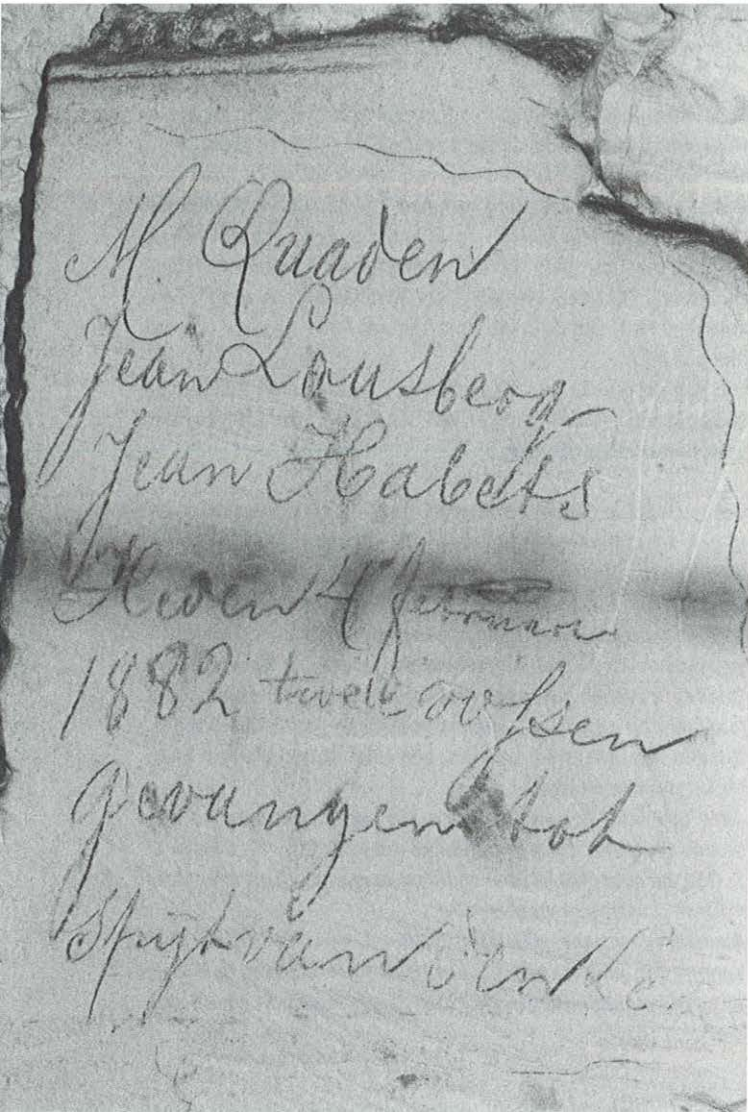 M. Quaden
Jean Lousberg
Jean Habets
Heden 4 februari
1882 twee vossen
gevangen tot
Spijt van